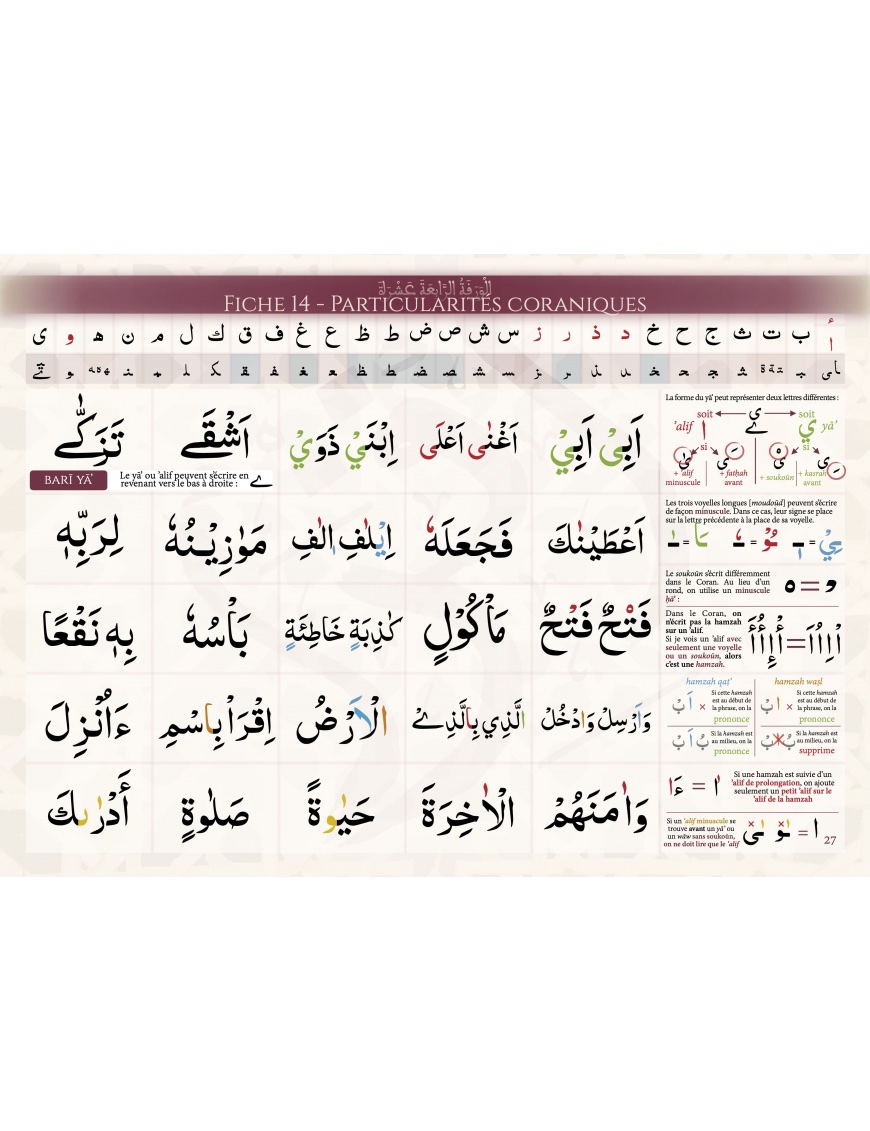 الْوَرَقَةُ الرَّابِعَةَ عَشْرَةَ
Fiche 14 - Particularités coraniques
أ ب ت ث ج ح خ د ذ ر ز س ش ص ض ط ظ ع غ ف ق ك ل م ن ه و ي
اَبِىْ اَبِيْ
اَغْنٰى اَعْلَى
اِبْنَيْ ذَوَيْ
اَشْقَے
تَزَكّٰے
BARĪ YĀ’
Le yā’ ou ’alif peuvent s’écrire en
revenant vers le bas à droite : ے
اَعْطَيْنٰكَ
فَجَعَلَهٗ
اِيْلٰفِ اٖلٰفِ
مَوٰزِيْنُهٗ
لِرَبِّهٖ
فَتْحٌ فَتْحٌ
مَأْكُوْلٍ
كٰذِبَةٍ خَاطِئَةٍ
بَاْسُهٗ
بِهٖ نَقْعًا
وَاَرْسِلْ وَادْخُلْ
الَّذِي بِالَّذِے
الْاَرْضُ
اِقْرَاْ بِاسْمِ
ءَاُنْزِلَ
وَاٰمَنَهُمْ
الْاٰخِرَةَ
حَيٰوةً
صَلٰوةٍ
أَدْرٰىكَ
La forme du yā’ peut représenter deux lettres différentes :
soit ى soit
’alif ا ے ي yā’
si si
+ ’alif minuscule
+ fatḥah avant
+ soukoûn
+ kasrah avant
Les trois voyelles longues [moudoûd] peuvent s’écrire
de façon minuscule. Dans ce cas, leur signe se place
sur la lettre précédente à la place de sa voyelle.
Le soukoûn s’écrit différemment
dans le Coran. Au lieu d’un
rond, on utilise un minuscule
ḥā’ :
Dans le Coran, on
n’écrit pas la hamzah
sur un ’alif.
Si je vois un ’alif avec
seulement une voyelle
ou un soukoûn, alors
c’est une hamzah.
hamzah qaṭ‘
Si cette hamzah
est au début de
la phrase, on la
prononce
Si la hamzah est
au milieu, on la
prononce
hamzah waṣl
Si cette hamzah
est au début de
la phrase, on la
prononce
Si la hamzah est
au milieu, on la
supprime
Si une hamzah est suivie d’un
’alif de prolongation, on ajoute
seulement un petit ’alif sur le
’alif de la hamzah
اٰ = ءَا
Si un ’alif minuscule se
trouve avant un yā’ ou
un wāw sans soukoûn,
on ne doit lire que le ’alif
27